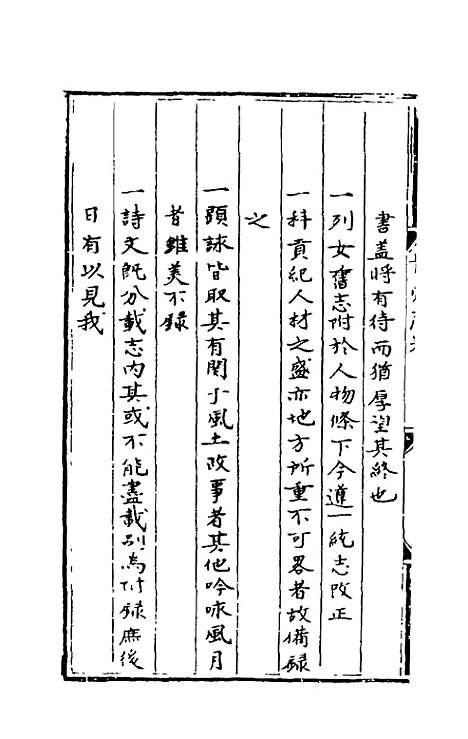 書盖將有待而猶厚望其終也
一列女舊志附於人物條下今遵一統志改正
一科貢紀人材之盛亦地方所重不可畧者故備録
之
一題詠皆取其有関于風土故事者其他吟咏風月
者雖美不録
一詩文既分載志内其或不能盡載别為附録庶後
日有以見我